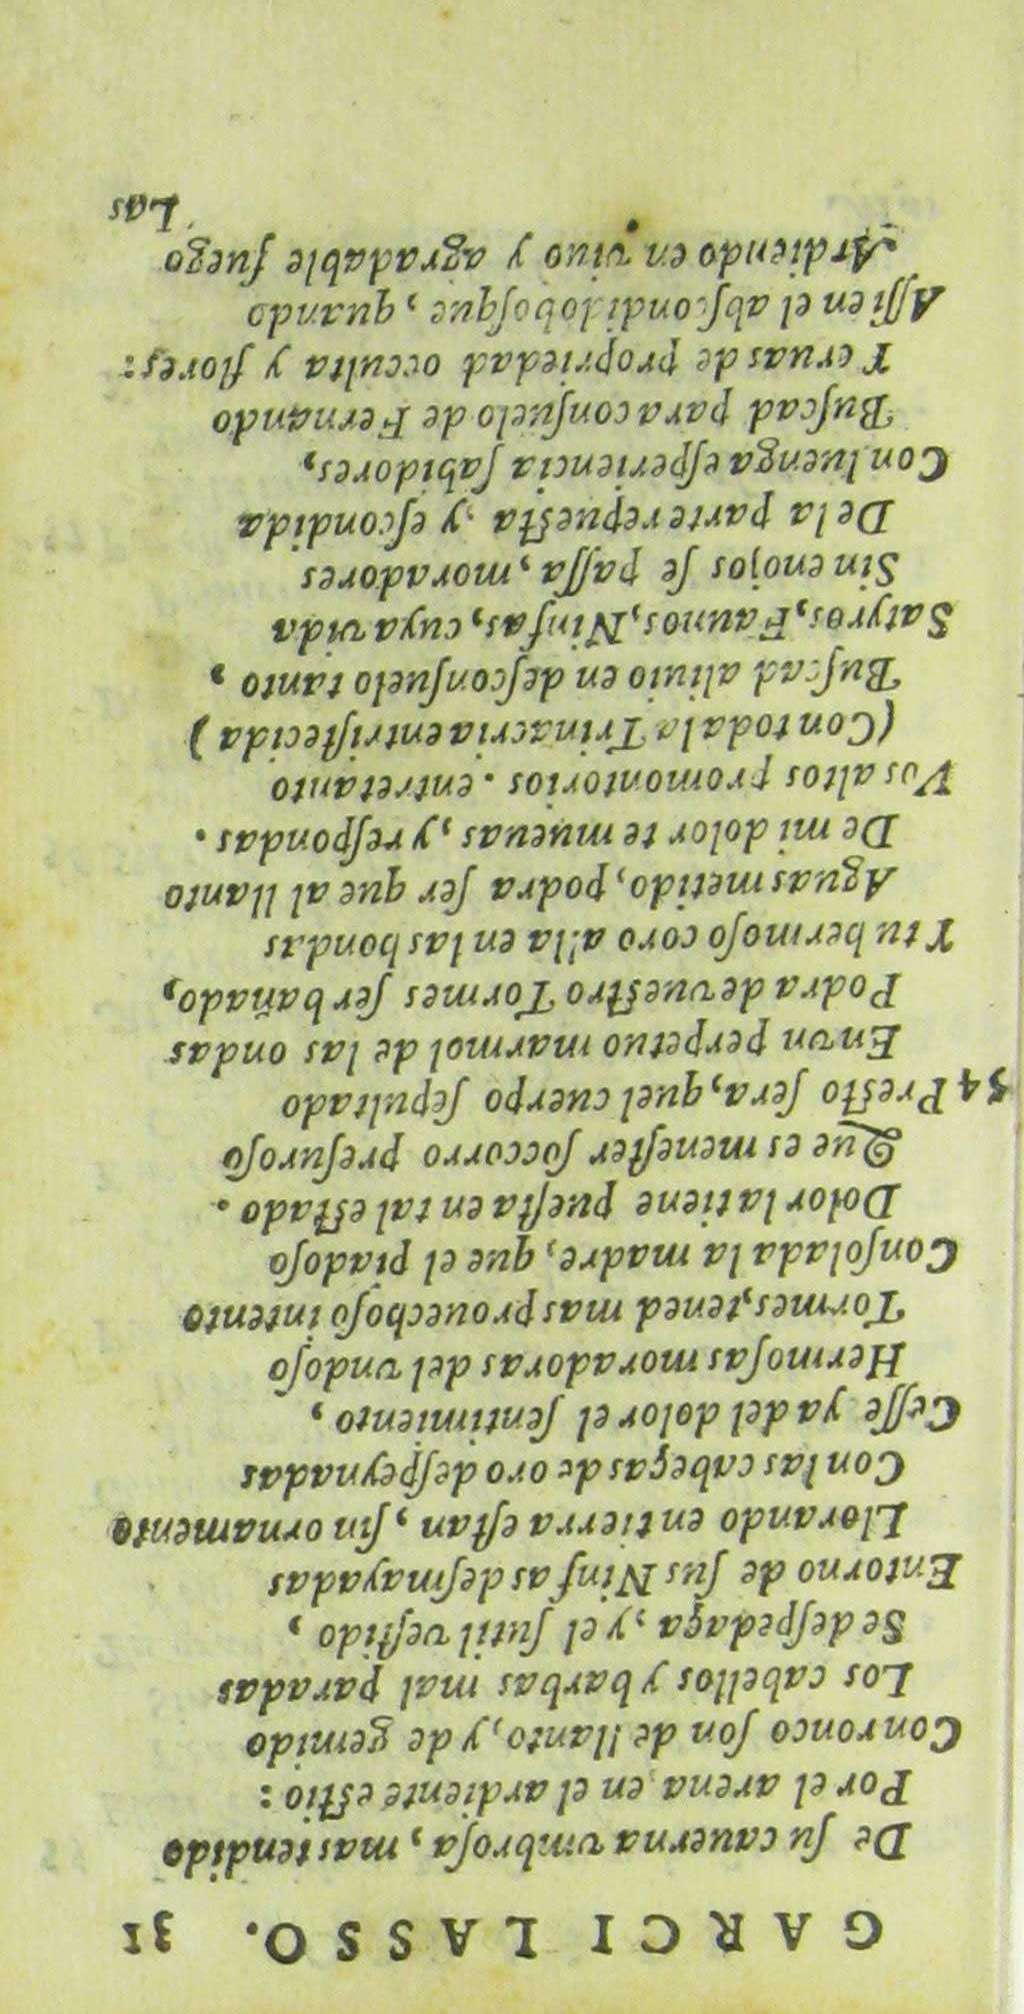 GARCI LASSO. 31
De ſu cauerna vmbroſa, mas tendido
Por el arena en el ardiente eſtio:
Con ronco ſon de llanto, y de gemido
Los cabellos y barbas mal paradas
Se deſpedaça, y el ſutil veſtido,
Entorno de ſus Ninfas deſmayadas
Llorando en tierra eſtan, ſin ornamento
Con las cabeças de oro deſpeynadas
Ceſſe ya del dolor el ſentimiento,
Hermoſas moradoras del vndoſo
Tormes, tened mas prouechoſo intento
Conſolad a la madre, que el piadoſo
Dolor la tiene pueſta en tal eſtado.
Que es meneſter ſoccorro preſuroſo
54 Preſto ſera, quel cuerpo ſepultado
En vn perpetuo marmol de las ondas
Podra de vueſtro Tormes ſer bañado,
Y tu hermoſo coro alla en las hondas
Aguas metido, podra ſer que al llanto
De mi dolor te mueuas, y reſpondas.
Vos altos promontorios . entretanto
(Con toda la Trinacria entriſtecida)
Buſcad aliuio en deſconſuelo tanto,
Satyros, Faunos, Ninfas, cuya vida
Sin enojos ſe paſſa, moradores
De la parte repueſta y eſcondida
Con luenga eſperiencia ſabidores,
Buſcad para conſuelo de Fernando
Yeruas de propriedad occulta y flores:
Aſſi en el abſcondido boſque, quando
Ardiendo en viuo y agradable fuego
Las